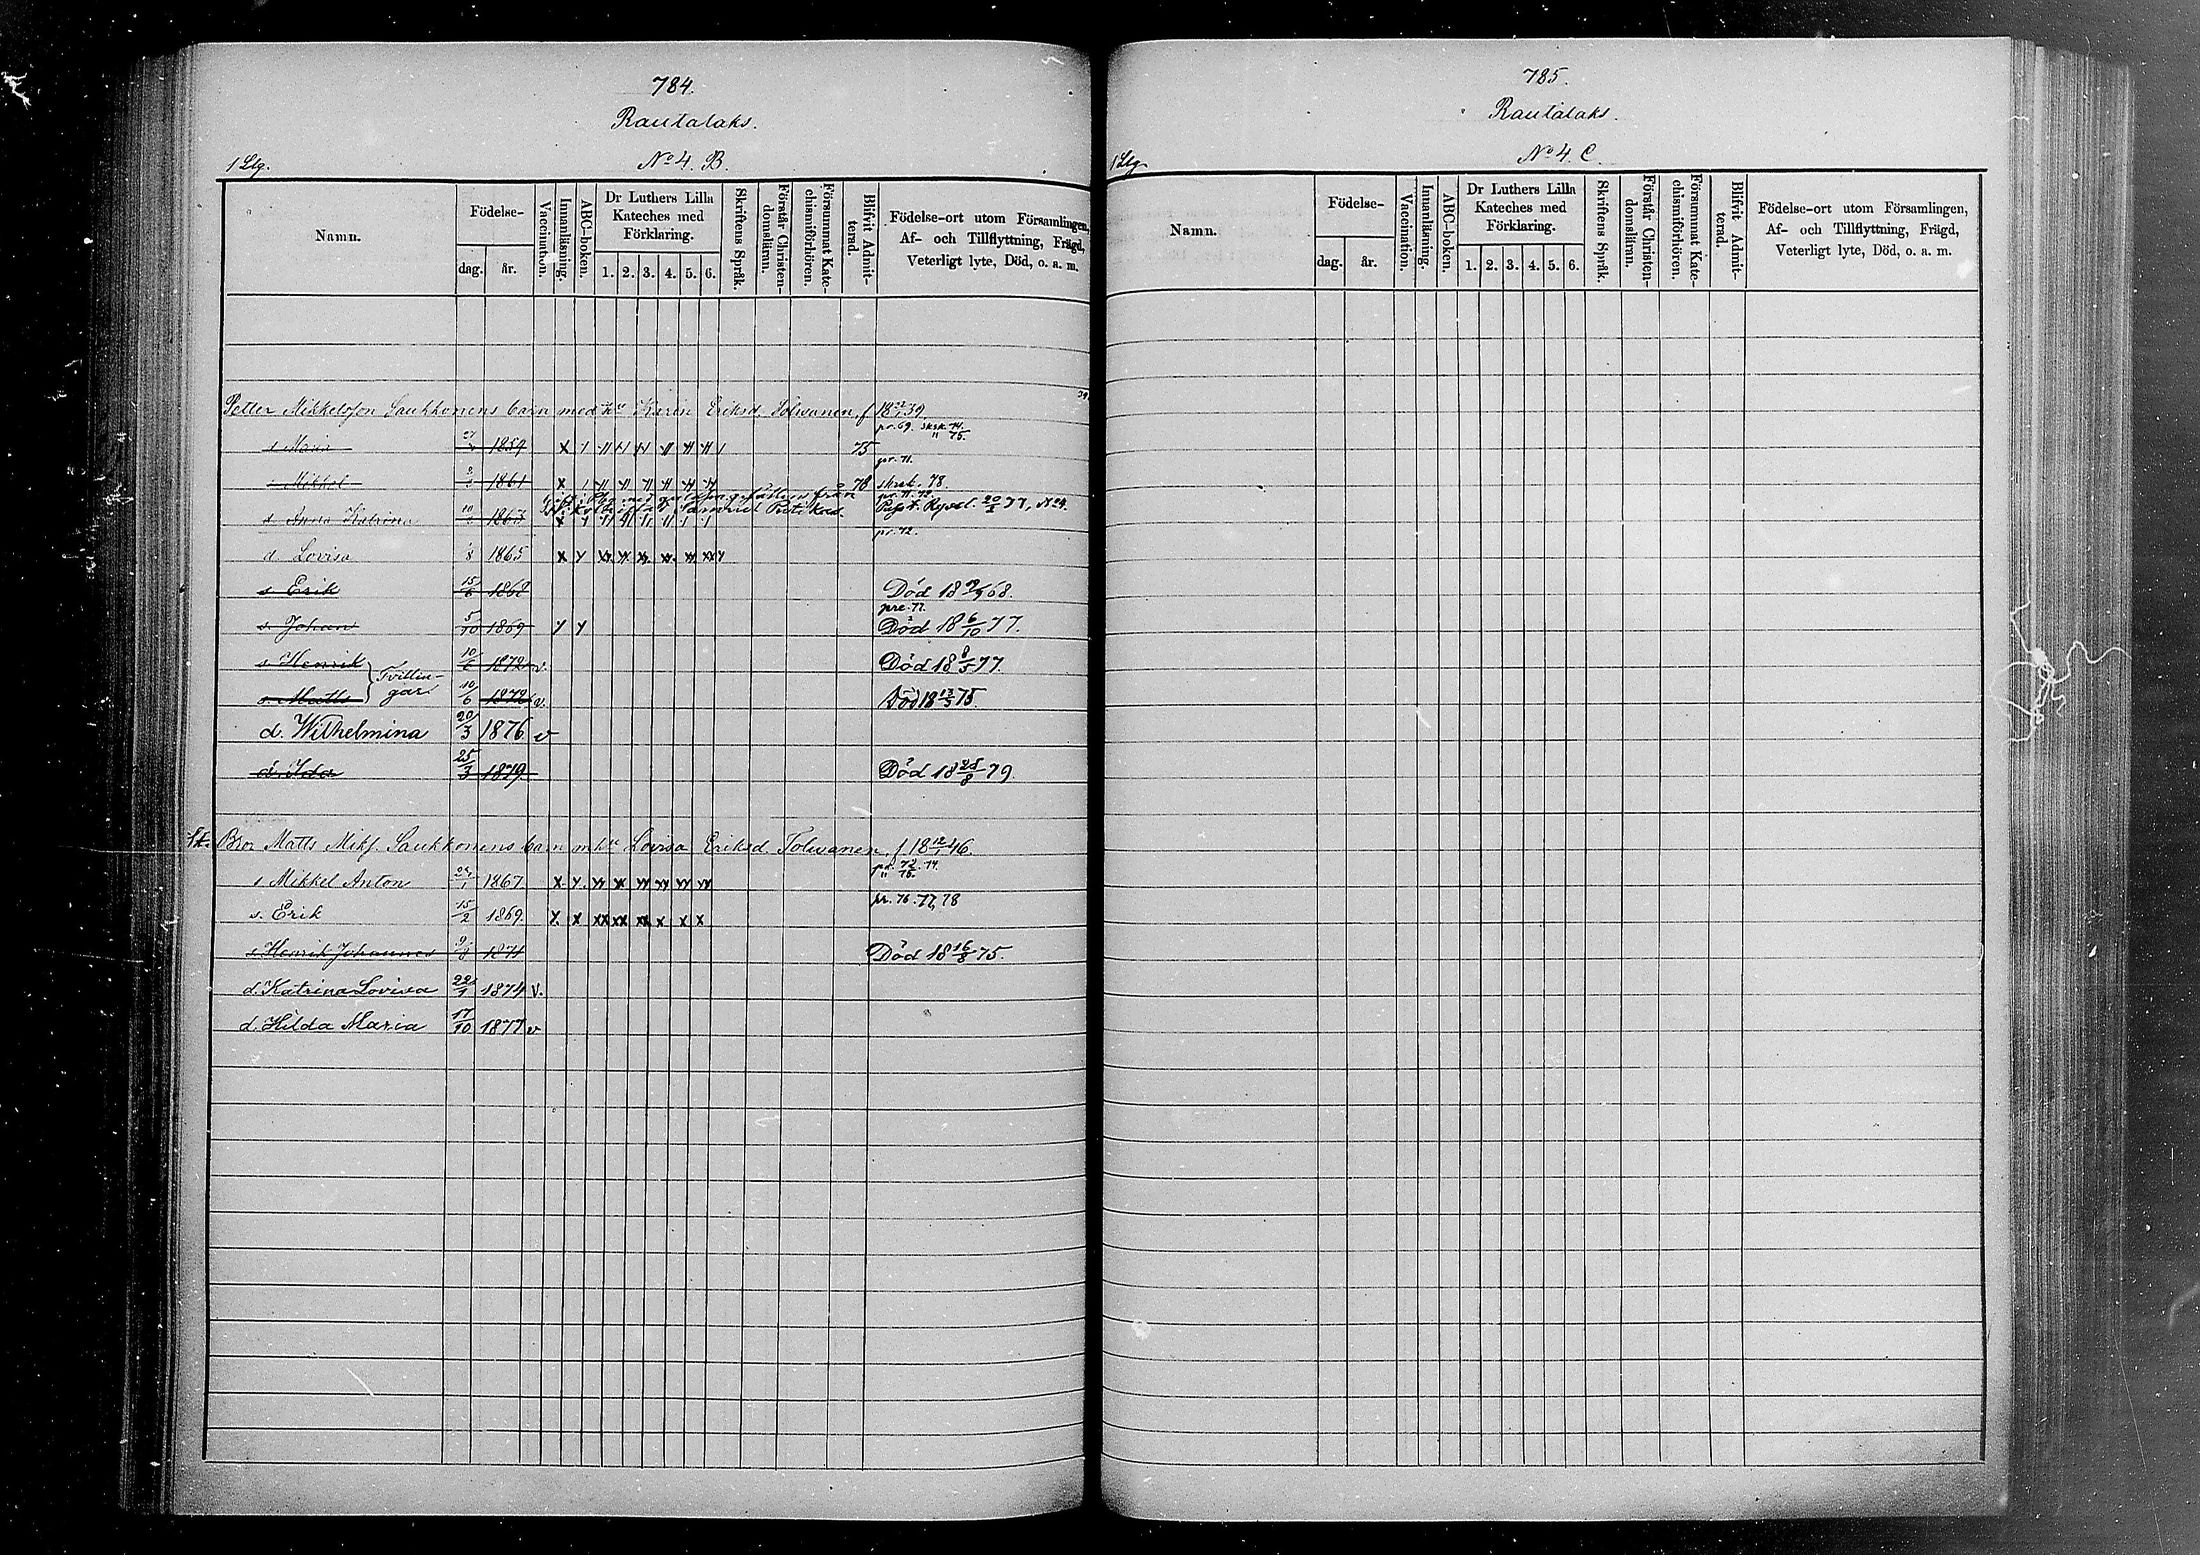 784.
Rautalaks.
1 Lsg. No 4. B.
Namn.
Födelse-
dag. år.
Vaccination.
Innanläsning.
ABC-boken.
Dr Luthers Lilla
Kateches med
Förklaring.
1. 2. 3. 4. 5. 6.
Skriftens Språk.
Förstår Christen-
domsläran.
Försummat Kate-
chismiförhören.
Blifvit Admit-
terad.
Födelse-ort utom Församlingen,
Af- och Tillflyttning, Frägd,
Veterligt lyte, Död, o. a. m.
Petter Mikkelsson Saukkonens barn med hu Karin Eriksd. Tolvanen, f 18 39.
pr. 69. sksk. 74.
" 75.
s Maria 1859 x 75
pr. 71.
s Mikkel 1861 x 78 sksk. 78.
pr. 71. 72.
s Anna Katrina 10 1863 x No 4.
pr. 72.
d Lovisa 8 1865 x
s Erik 15/6 1868 Död 18 68.
pre. 77.
s. Johan 5/10 1869 Död 18 6/10 77.
s Henrik 10/6 1872 v. Död 18 8/5 77.
Tvillin-
gar.
s. Matts 10/6 1872 v. Död 18 13/5 75.
d. Wilhelmina 20/3 1876 v
d. Ida 25/3 1879. Död 18 25/8 79.
Bror Matts Mikf. Saukkonens barn m hu Lovisa Eriksd. Tolvanen, f. 18 12/1 46.
pr. 72. 74.
" 75.
s Mikkel Anton 1867
pr. 76. 77, 78
s. Erik 15/2 1869. x x xx xx xx x x x
s Henrik Johannes 9/8 1871 Död 18 16/8 75.
d. Katrina Lovisa 22/1 1874 v.
d. Hilda Maria 17/10 1877 v
785.
Rautalaks.
1 Lsg No 4. C.
Namn.
Födelse-
dag. år.
Vaccination.
Innanläsning.
ABC-boken.
Dr Luthers Lilla
Kateches med
Förklaring.
1. 2. 3. 4. 5. 6.
Skriftens Språk.
Förstår Christen-
domsläran.
Försummat Kate-
chismiförhören.
Blifvit Admit-
terad.
Födelse-ort utom Församlingen,
Af- och Tillflyttning, Frägd,
Veterligt lyte, Död, o. a. m.